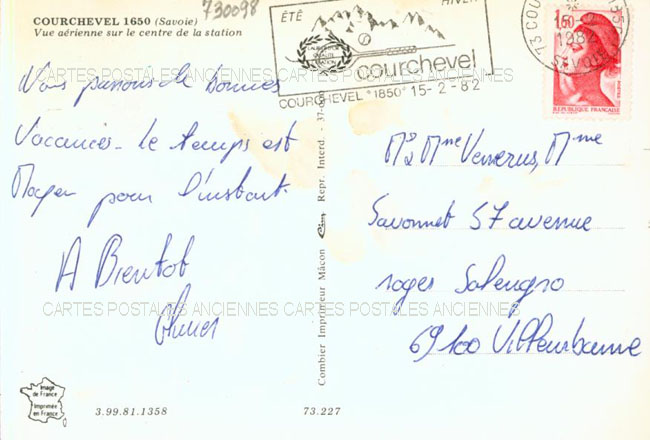 COURCHEVEL 1650 (Savoie)
Vue aérienne sur le centre de la station
730098
ÉTÉ
HIVER
courchevel
COURCHEVEL "1850" 15-2-82
73 COU
15-2
1982
SAVOIE
1,60
REPUBLIQUE FRANÇAISE
CARTES POSTALES ANCIENNES CARTES POSTALES ANCIENNES
Nous passons de bonnes
Vacances. Le temps est
Moyen pour l'instant.
A Bientot
Combier Imprimeur Mâcon Cim Repr. Interd. - 37
Mr & Mme Venerus, Mme
Savonnet 57 avenue
roger Salengro
69100 Villeurbanne
CARTES POSTALES ANCIENNES CARTES POSTALES ANCIENNES
Image
de France
Imprimée
en France
3.99.81.1358
73.227